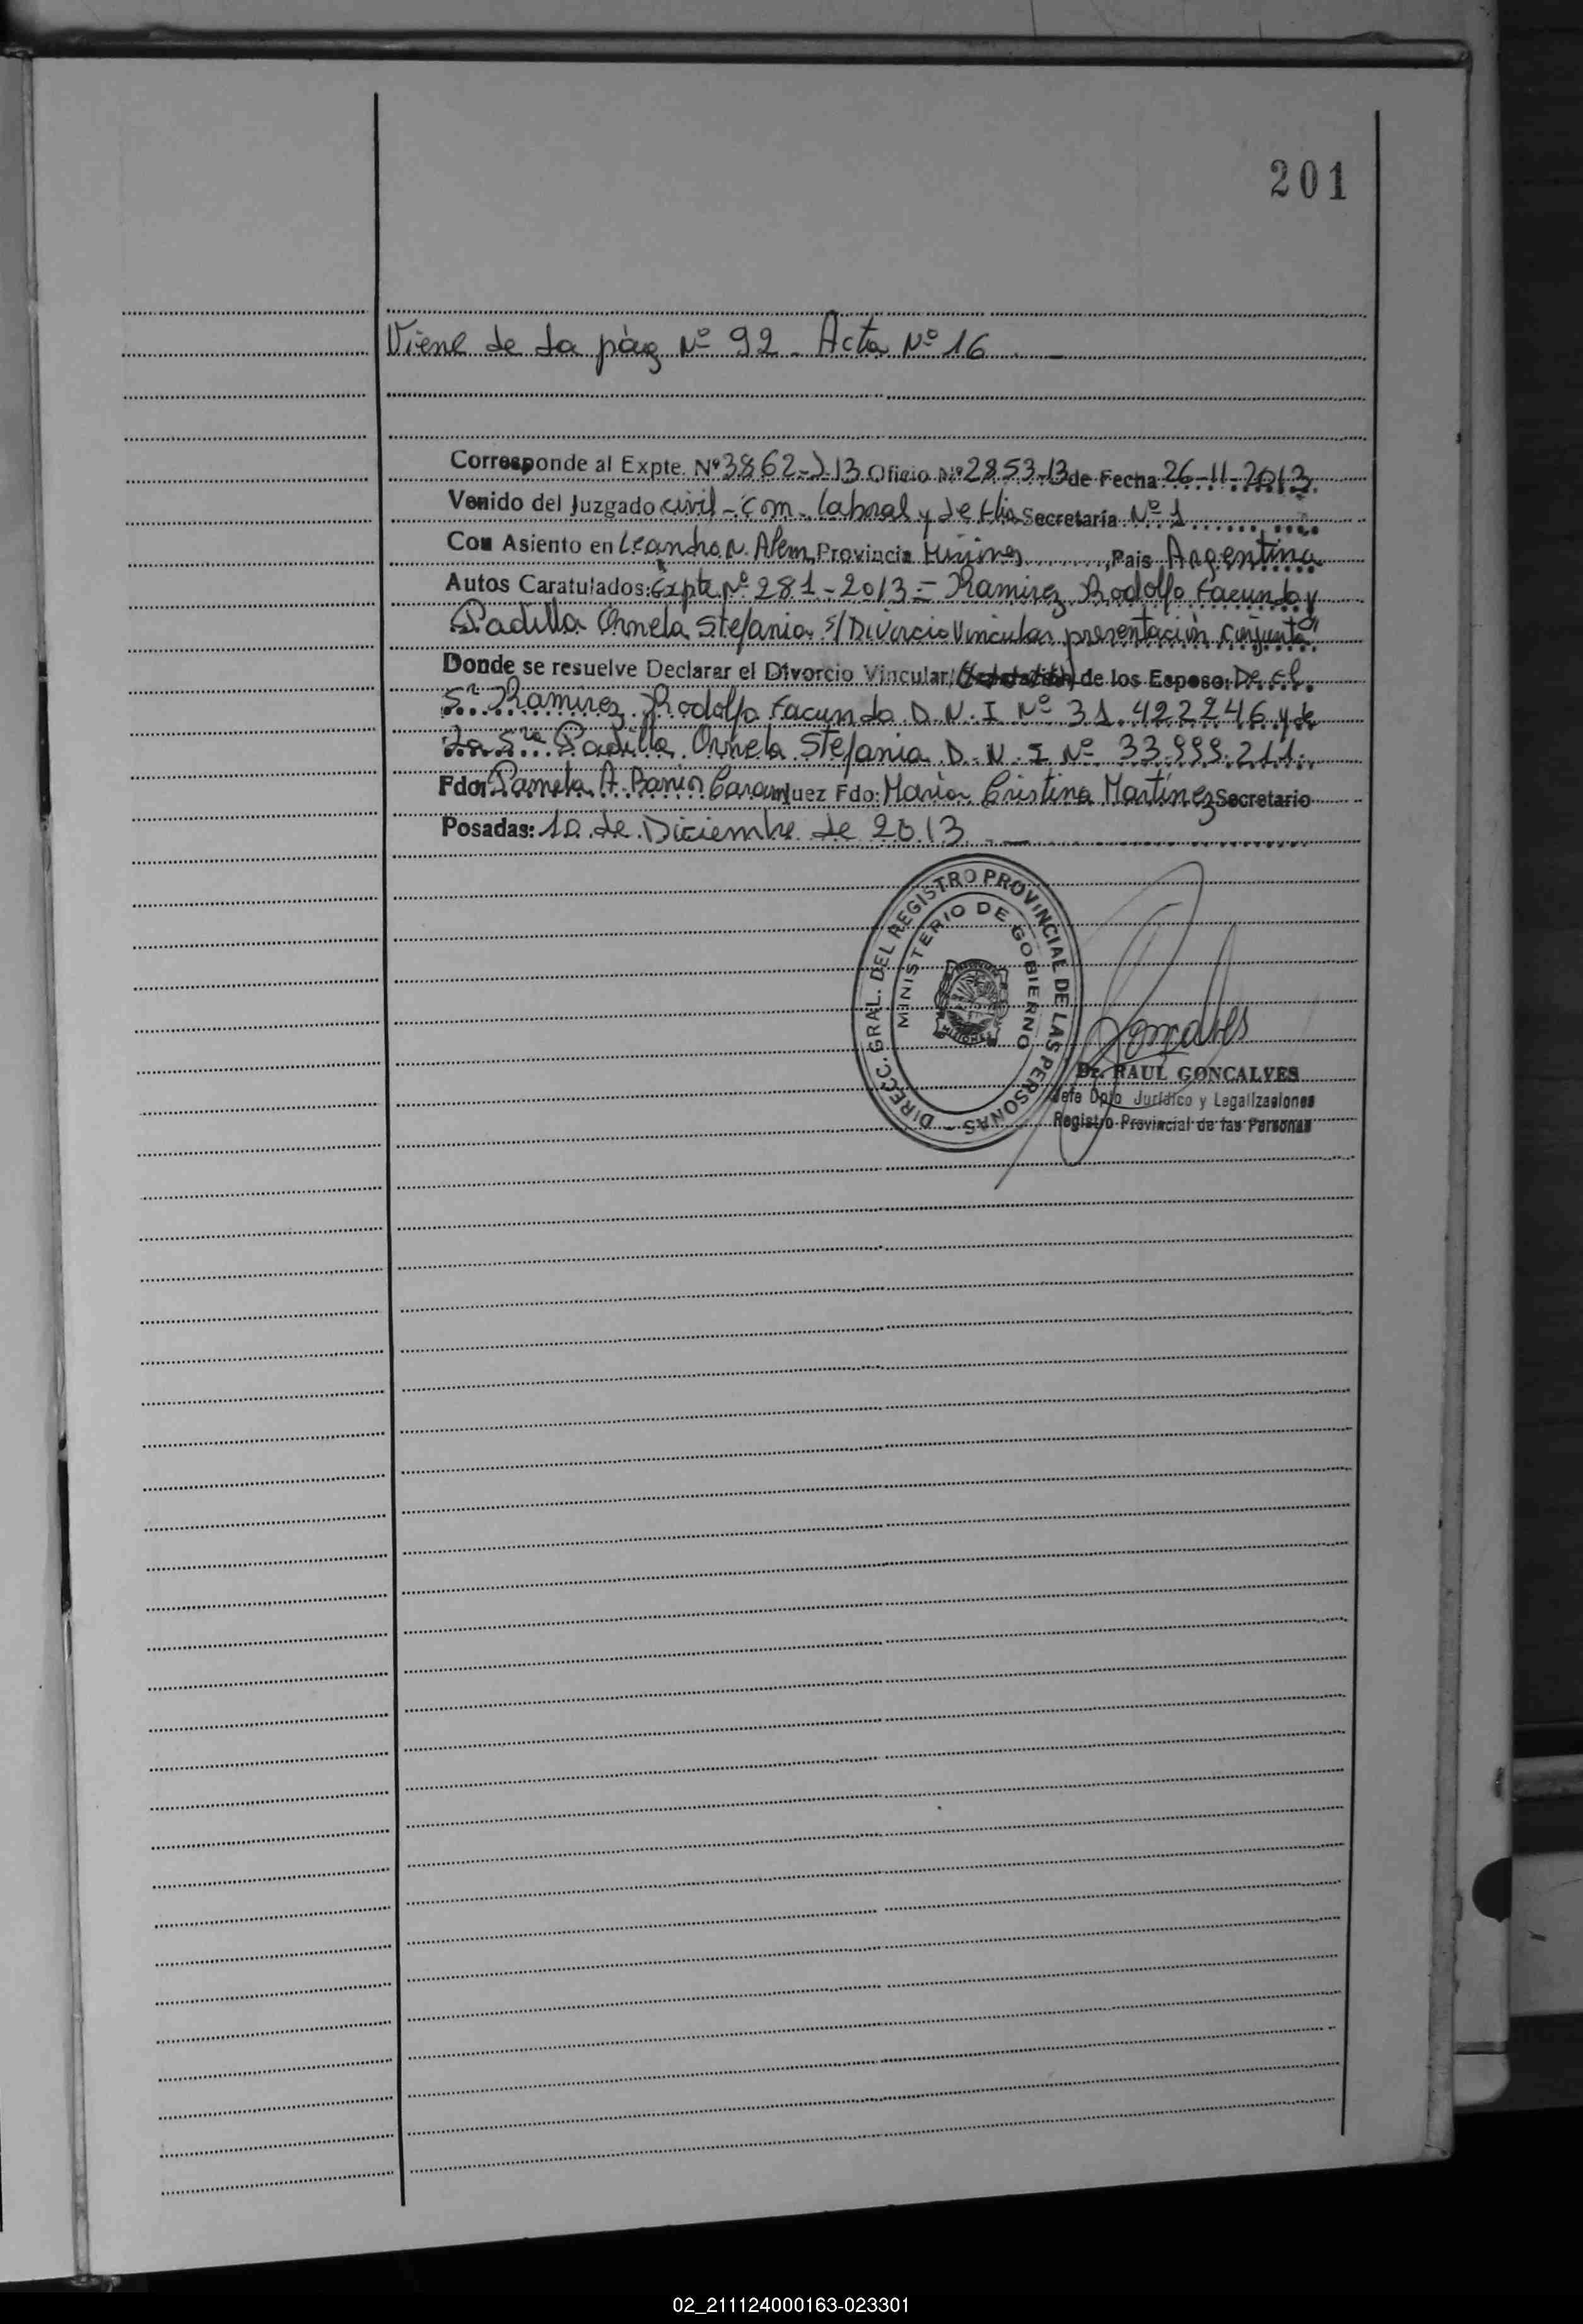 201
Viene de la pág Nº 92 - Acta Nº 16 . -
Corresponde al Expte. Nº 3862-J-13 Oficio Nº 2853-13 de Fecha 26-11-2013
Venido del Juzgado civil - Com - laboral y de Flia Secretaría Nº 1
Con Asiento en Leandro N. Alem, Provincia Misiones, Pais Argentina
Autos Caratulados: Expte Nº 281-2013 = Ramirez Rodolfo Facundo y
Padilla Ornela Stefania s/ Divorcio Vincular presentación conjunta"
Donde se resuelve Declarar el Divorcio Vincular de los Esposo: De el
Sr Ramirez Rodolfo Facundo D.N.I Nº 31.422246 y de
La Sra Padilla Ornela Stefania D.N.I Nº 33.999.211.
Fdo: Pamela A. Juez Fdo: Maria Cristina Martínez Secretario
Posadas: 10 de Diciembre de 2013. -
DIRECC. GRAL. DEL REGISTRO PROVINCIAL DE LAS PERSONAS -
MINISTERIO DE GOBIERNO
MISIONES
Goncalves
Dr. RAUL GONCALVES
Jefe Dpto Juridico y Legalizaciones
Registro Provincial de las Personas
02_211124000163-023301